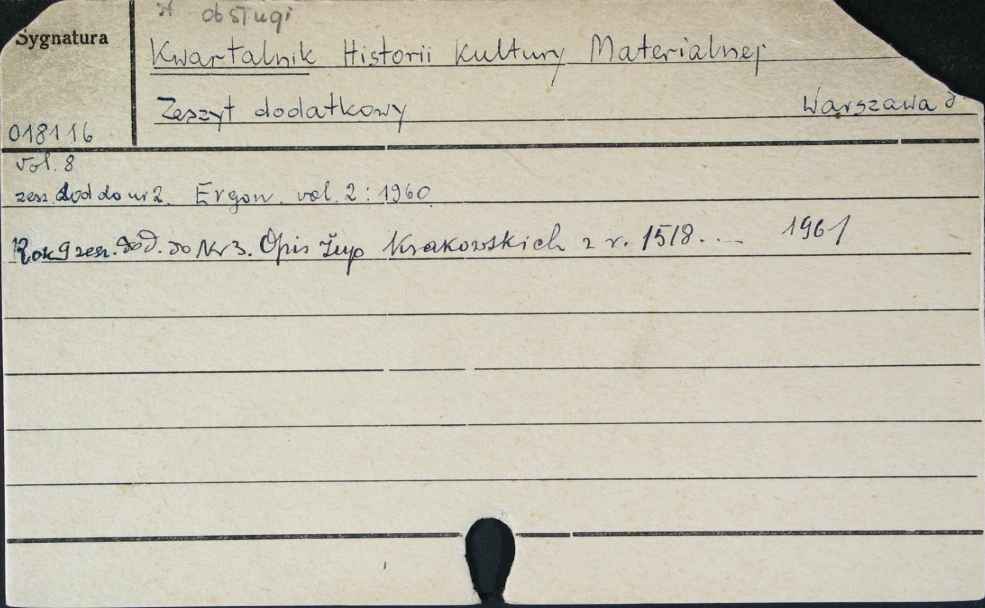 obsługi
Sygnatura
Kwartalnik Historii Kultury Materialnej
Zeszyt dodatkowy Warszawa
018116
vol. 8
zesz. dod do nr 2. Ergon. vol. 2 : 1960
Rok 9 zesz. dod. do Nr 3. Opis Żup Krakowskich z r. 1518. ... 1961